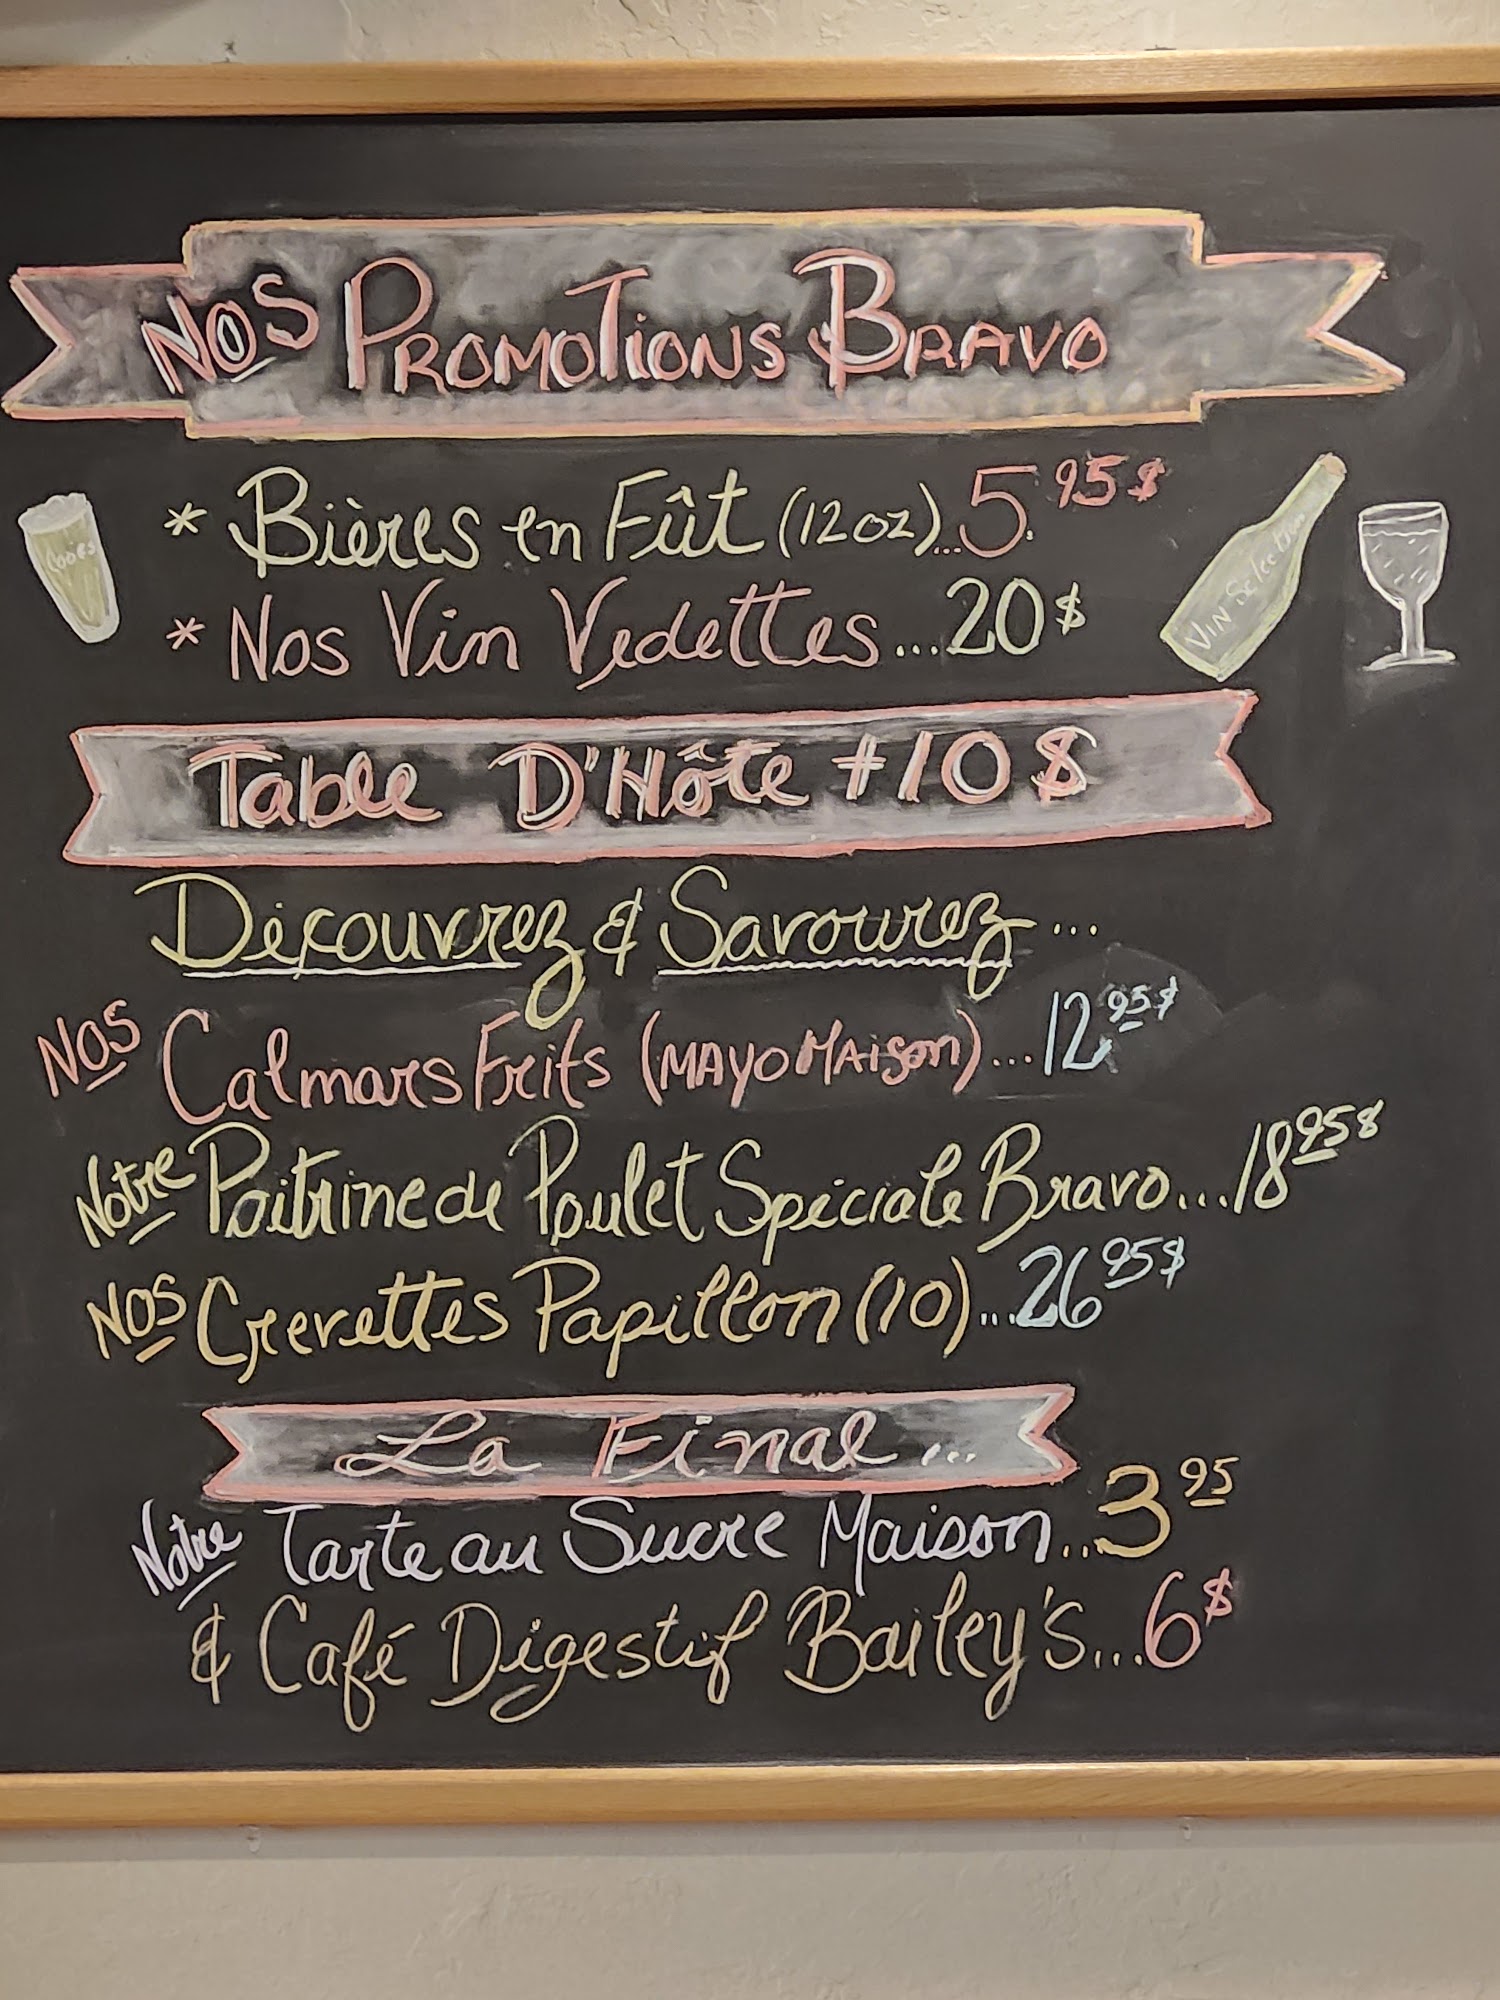 NOS PROMOTIONS BRAVO
* Bières en Fût (12oz)...5.95$
* Nos Vin Vedettes...20$
VIN Selection
Table D'Hôte +10$
Découvrez & Savourez...
NOS Calmars Frits (MAYO MAison)...12 95$
Notre Poitrine de Poulet Spéciale Bravo...18 95$
NOS Crevettes Papillon (10)...26 95$
La Final...
Notre Tarte au Sucre Maison...3 95
& Café Digestif Bailey's...6$